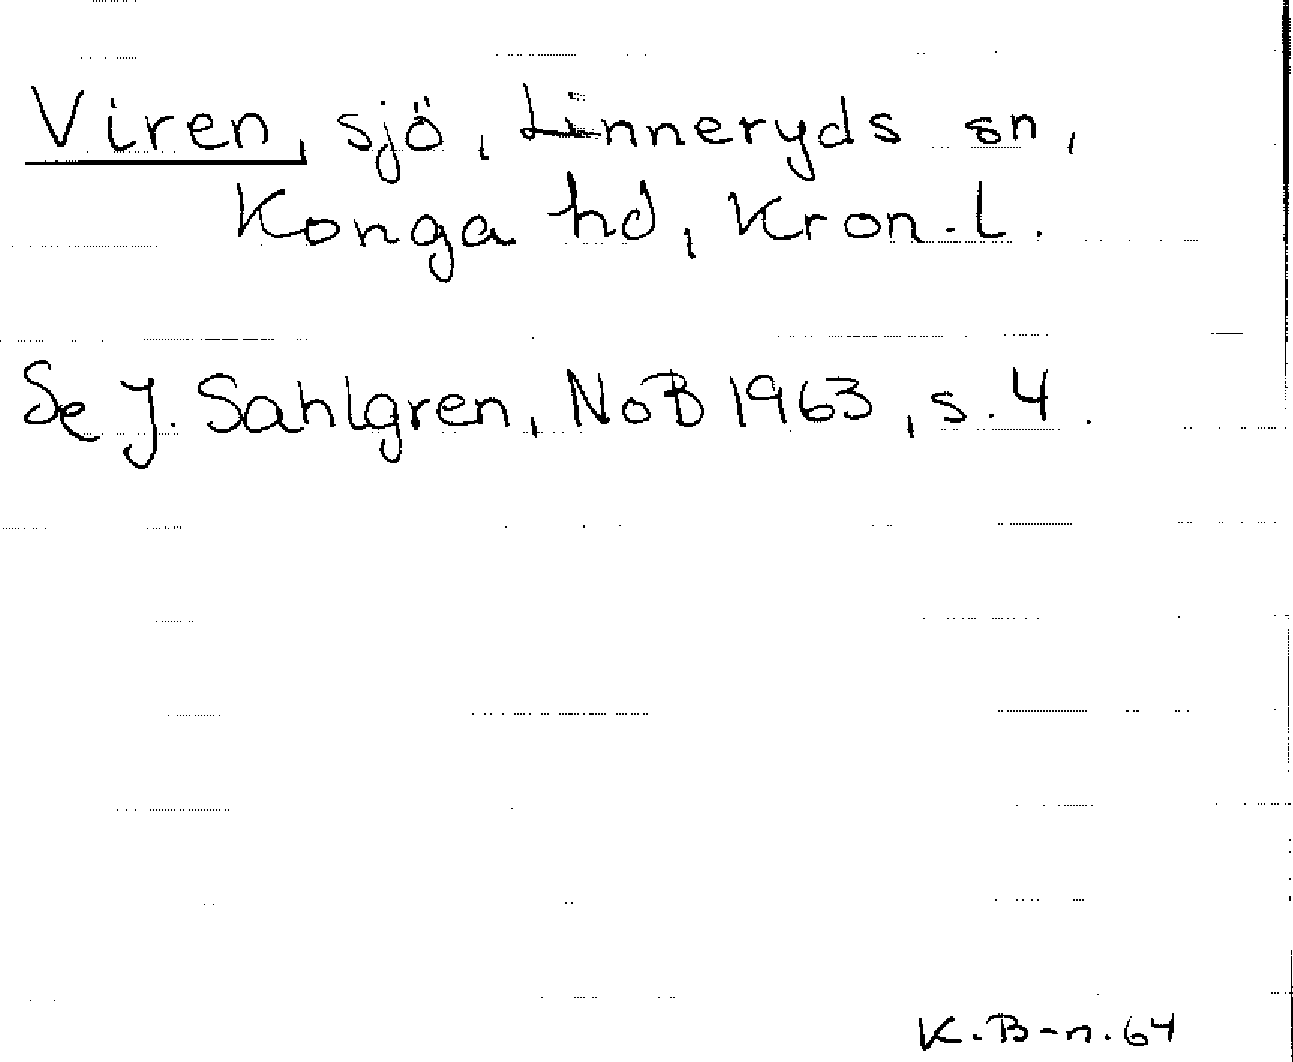 Viren, sjö, Linneryds sn,
Konga hd, Kron.l.
Se J. Sahlgren, NoB 1963, s. 4.
K.B-n.64